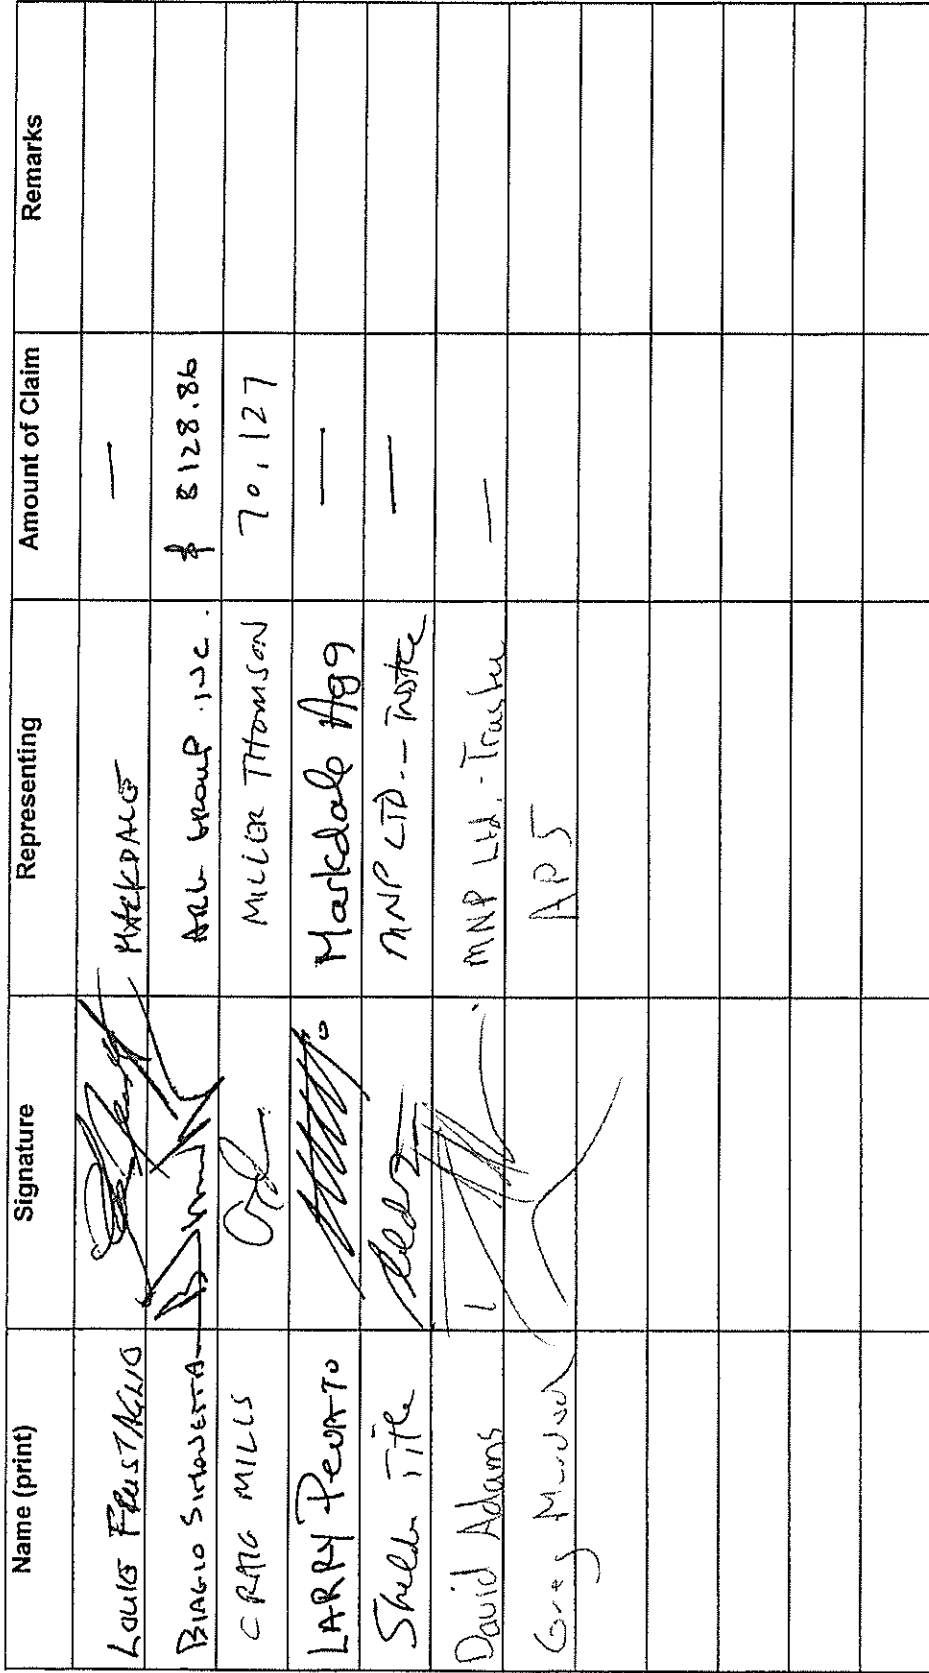 Name (print) Signature Representing Amount of Claim Remarks
LOUIE FRUSTAGLIO MARKDALE —
BIAGIO SIMONETTA ARL GROUP INC. $ 8128.86
CRAIG MILLS MILLER THOMSON 70,127
LARRY PEVATO Markdale Agg —
Sheldon Title MNP LTD. - Trustee —
David Adams MNP Ltd. - Trustee —
Greg APS